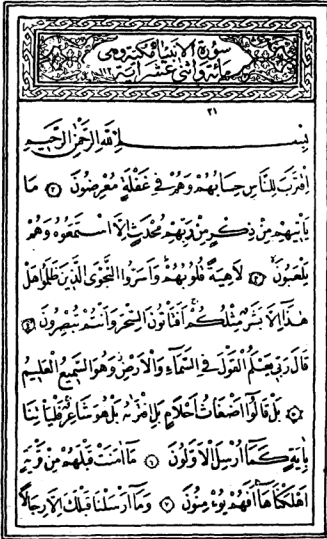 سورة الانبياء مكية وهى
مائة واثنتى عشر آية ١١٢
٢١
بِسْــــــمِ اللهِ الرَّحْمٰنِ الرَّحِيمِ
اِقْتَرَبَ لِلنَّاسِ حِسَابُهُمْ وَهُمْ فِى غَفْلَةٍ مُعْرِضُونَ ۝٢ مَا
يَاْتِيهِمْ مِنْ ذِكْرٍ مِنْ رَبِّهِمْ مُحْدَثٍ اِلَّا اسْتَمَعُوهُ وَهُمْ
يَلْعَبُونَ ۝٣ لَاهِيَةً قُلُوبُهُمْ وَاَسَرُّوا النَّجْوَى الَّذِينَ ظَلَمُوا هَلْ
هٰذَا اِلَّا بَشَرٌ مِثْلُكُمْ اَفَتَاْتُونَ السِّحْرَ وَاَنْتُمْ تُبْصِرُونَ ۝٤
قَالَ رَبِّى يَعْلَمُ الْقَوْلَ فِى السَّمَاءِ وَالْاَرْضِ وَهُوَ السَّمِيعُ الْعَلِيمُ
۝٥ بَلْ قَالُوا اَضْغَاثُ اَحْلَامٍ بَلِ افْتَرٰيهُ بَلْ هُوَ شَاعِرٌ فَلْيَاْتِنَا
بِاٰيَةٍ كَمَا اُرْسِلَ الْاَوَّلُونَ ۝٦ مَا اٰمَنَتْ قَبْلَهُمْ مِنْ قَرْيَةٍ
اَهْلَكْنَاهَا اَفَهُمْ يُؤْمِنُونَ ۝٧ وَمَا اَرْسَلْنَا قَبْلَكَ اِلَّا رِجَالًا